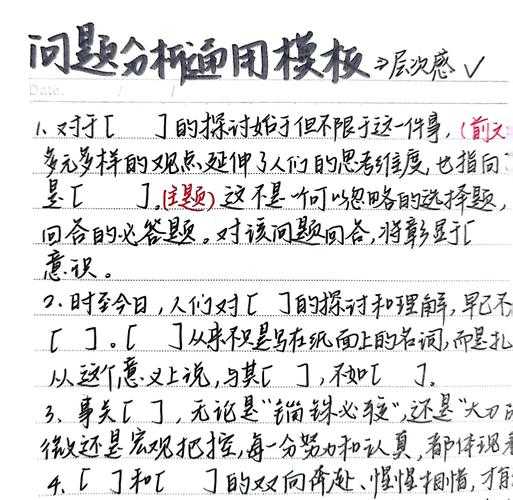 问题分析通用模板→层次感✓
Date.    /    /
1、对于[  ]的探讨始于但不限于这一件事,(前文
多元多样的观点延伸了人们的思考维度,也指向
是[  ]。(主题)这不是一个可以忽略的选择题,
回答的必答题。对该问题回答,将彰显于[
意识。
2、时至今日,人们对[  ]的探讨和理解,早已不
[  ]。[  ]从来不只是写在纸面上的名词,而是扎
从这个意义上说,与其[  ],不如[  ]。
3、事关[  ],无论是“锱铢必较”,还是“大刀
微还是宏观把控,每一分努力和认真,都体现
4、[  ]和[  ]的双向奔赴、惺惺相惜,才